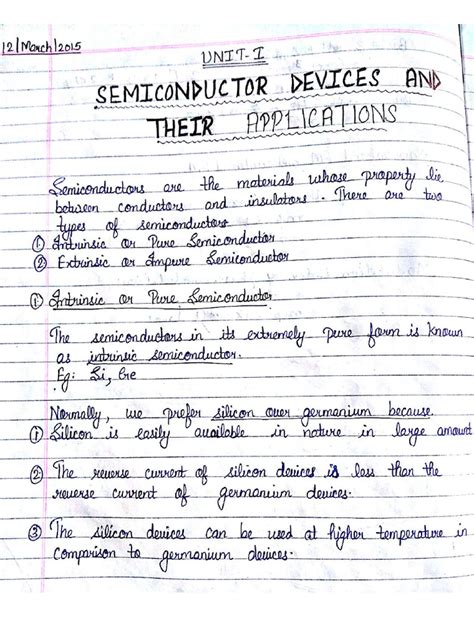 12/March/2015
UNIT-I
SEMICONDUCTOR DEVICES AND
THEIR APPLICATIONS
Semiconductors are the materials whose property lie
between conductors and insulators. There are two
types of semiconductors
① Intrinsic or Pure Semiconductor
② Extrinsic or Impure Semiconductor
① Intrinsic or Pure Semiconductor
The semiconductors in its extremely pure form is known
as intrinsic semiconductor.
Eg: Si, Ge
Normally, we prefer silicon over germanium because.
① Silicon is easily available in nature in large amount
② The reverse current of silicon devices is less than the
reverse current of germanium devices.
③ The silicon devices can be used at higher temperature in
comparison to germanium devices.